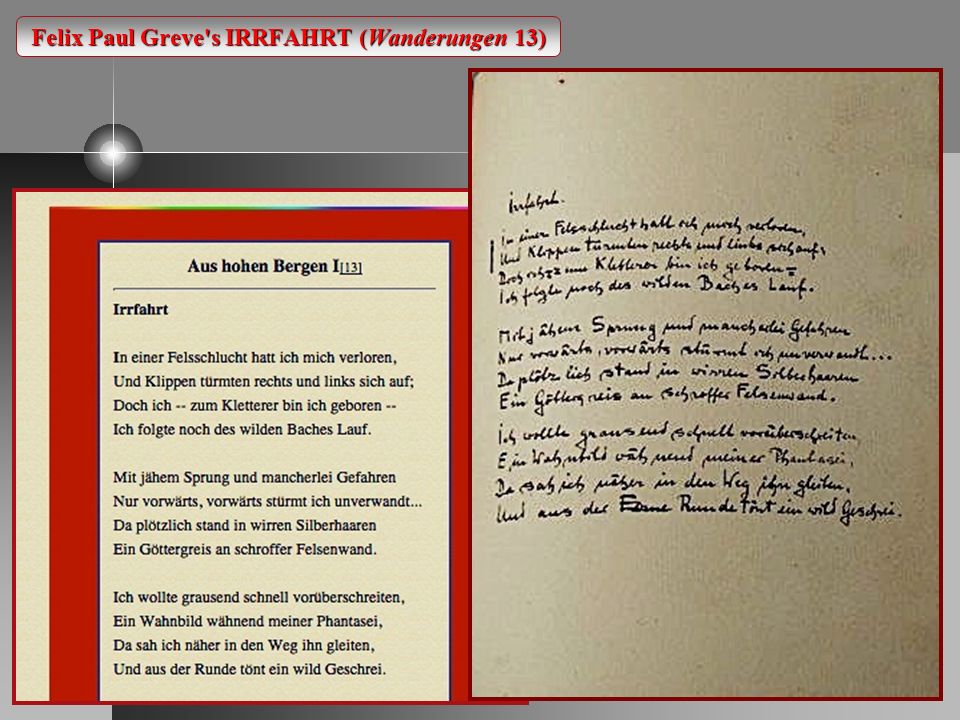 Felix Paul Greve's IRRFAHRT (Wanderungen 13)
Aus hohen Bergen I[13]
Irrfahrt
In einer Felsschlucht hatt ich mich verloren,
Und Klippen türmten rechts und links sich auf;
Doch ich -- zum Kletterer bin ich geboren --
Ich folgte noch des wilden Baches Lauf.
Mit jähem Sprung und mancherlei Gefahren
Nur vorwärts, vorwärts stürmt ich unverwandt...
Da plötzlich stand in wirren Silberhaaren
Ein Göttergreis an schroffer Felsenwand.
Ich wollte grausend schnell vorüberschreiten,
Ein Wahnbild wähnend meiner Phantasei,
Da sah ich näher in den Weg ihn gleiten,
Und aus der Runde tönt ein wild Geschrei.
Irrfahrt.
In einer Felsschlucht hatt ich mich verloren,
Und Klippen türmten rechts und links sich auf;
Doch ich zum Kletterer bin ich geboren –
Ich folgte noch des wilden Baches Lauf.
Mit jähem Sprung und mancherlei Gefahren
Nur vorwärts, vorwärts stürmt ich unverwandt...
Da plötzlich stand in wirren Silberhaaren
Ein Göttergreis an schroffer Felsenwand.
Ich wollte grausend schnell vorüberschreiten,
Ein Wahnbild wähnend meiner Phantasei,
Da sah ich näher in den Weg ihn gleiten,
Und aus der Runde tönt ein wild Geschrei.